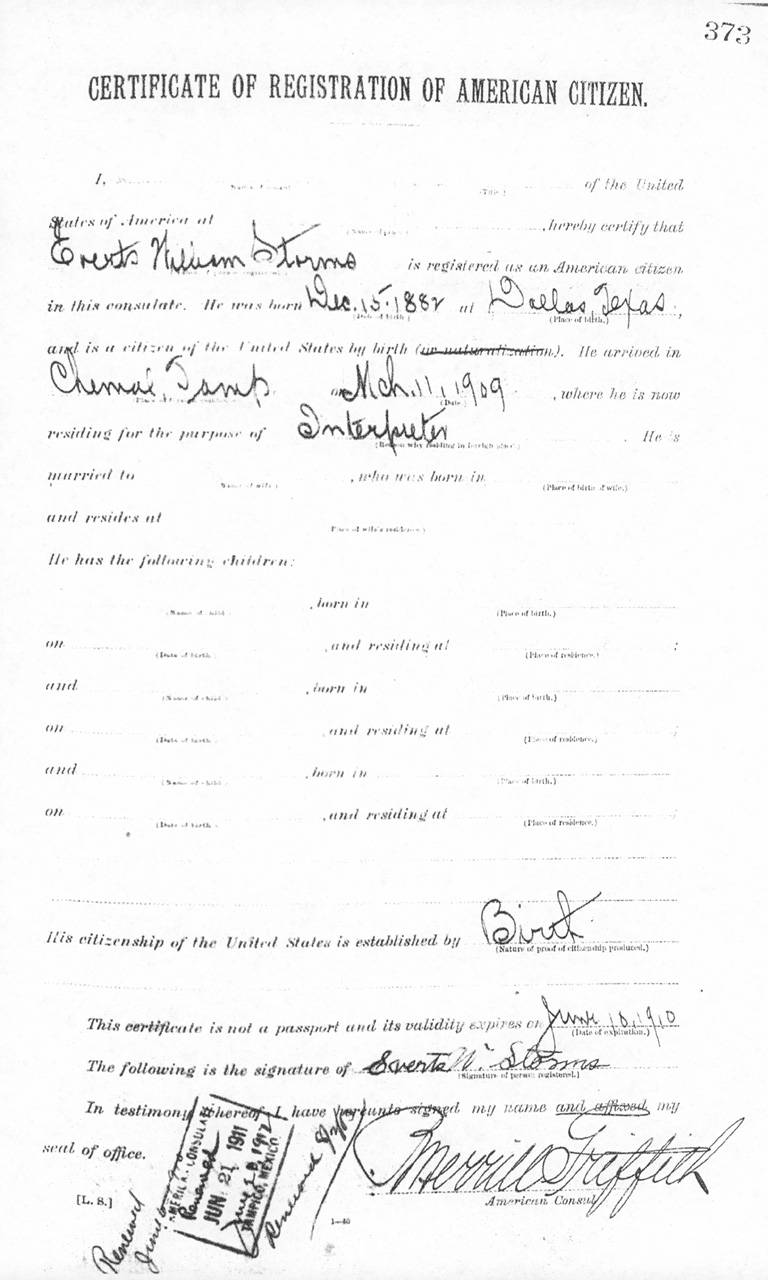 373
CERTIFICATE OF REGISTRATION OF AMERICAN CITIZEN.
I, of the United
(Title.)
States of America at , hereby certify that
Everts William Storms is registered as an American citizen
in this consulate. He was born Dec. 15-1882 at Dallas, Texas ,
(Date of birth.) (Place of birth.)
and is a citizen of the United States by birth (or naturalization). He arrived in
Tamp. on Mch. 11, 1909 , where he is now
(Date.)
residing for the purpose of Interpreter . He is
(Reason why residing in foreign place.)
married to , who was born in
(Name of wife.) (Place of birth of wife.)
and resides at
(Place of wife's residence.)
He has the following children:
, born in
(Name of child.) (Place of birth.)
on , and residing at ;
(Date of birth.) (Place of residence.)
and , born in
(Name of child.) (Place of birth.)
on , and residing at ;
(Date of birth.) (Place of residence.)
and , born in
(Name of child.) (Place of birth.)
on , and residing at
(Date of birth.) (Place of residence.)
His citizenship of the United States is established by Birth
(Nature of proof of citizenship produced.)
This certificate is not a passport and its validity expires on June 10, 1910
(Date of expiration.)
The following is the signature of Everts W. Storms
(Signature of person registered.)
In testimony whereof I have hereunto signed my name and affixed my
seal of office.
P. Merrill Griffith
American Consul
[L. S.]
AMERICAN CONSULATE
Renewed
JUN. 21 1911
TAMPICO, MEXICO
Renewed
Renewed
1—40